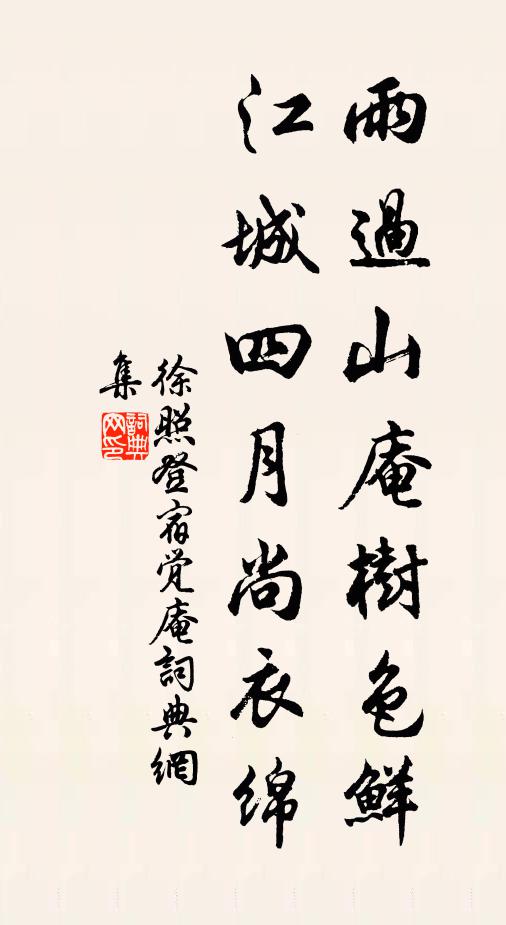 雨過山庵樹色鮮
江城四月尚衣綿
徐照登宿覚庵詞典網
集
詞典
网印